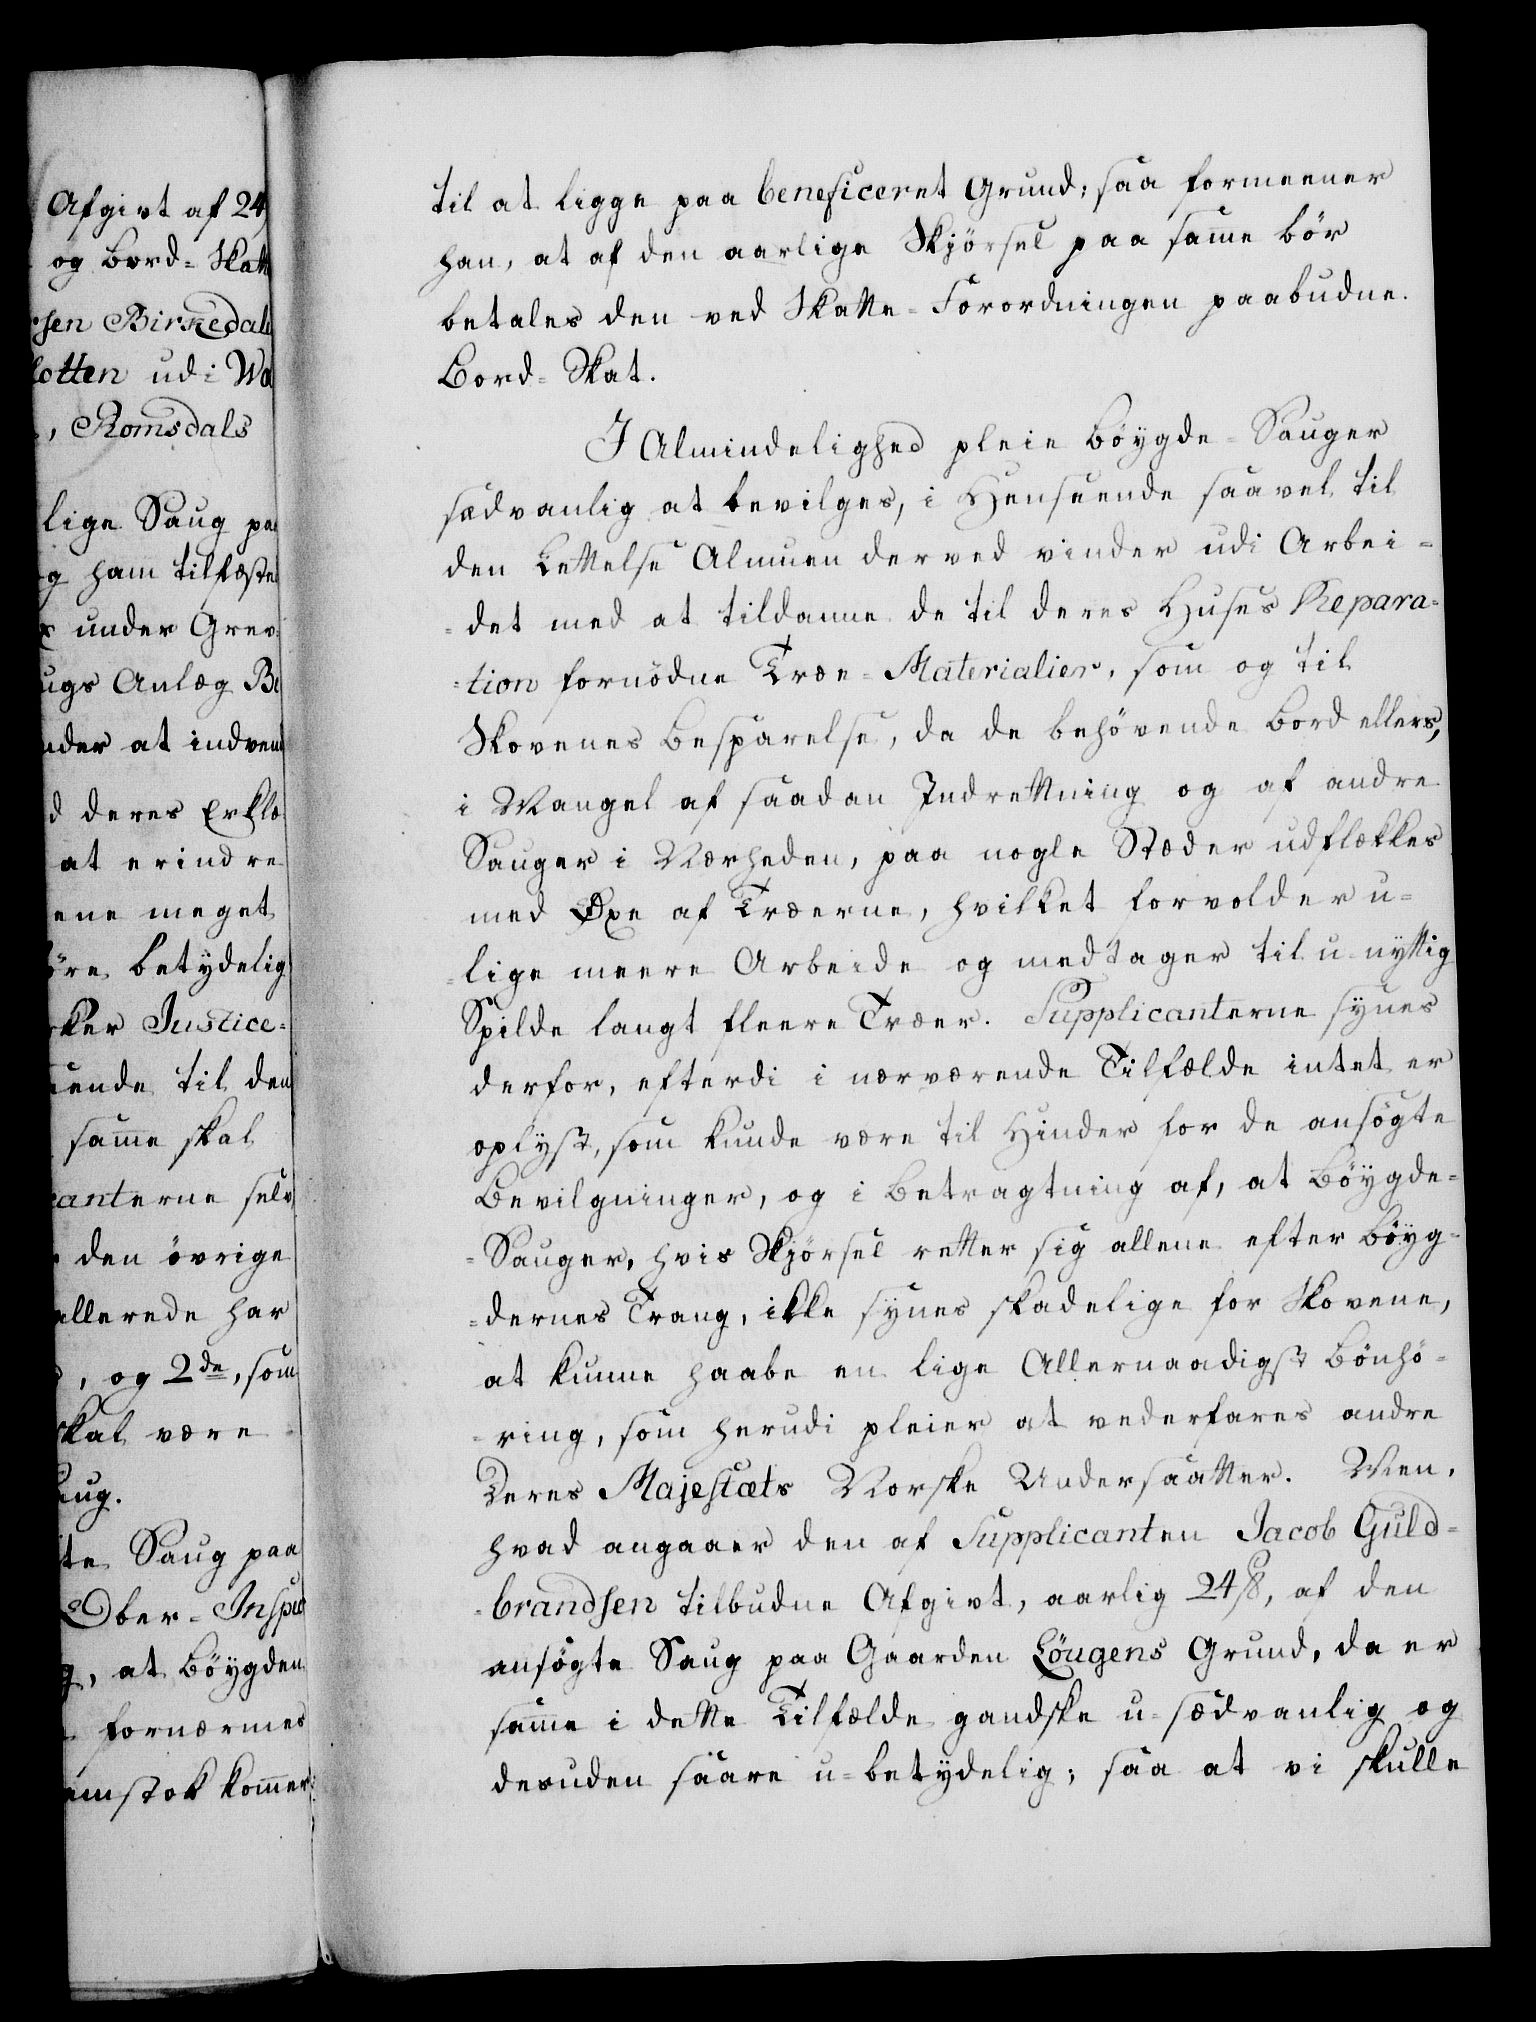 Afgivt af 24
og Bord-Skatt
rsen Birkedal
lotten udi Wa
, Romsdals
lige Saug paa
g ham tilfæste
under Grev
ugs Anlæg Be
nder at indvend
d deres Erklæ
at erindre
ene meget
øre betydelig
rker Justice-
eende til den
samme skal
canterne selv
den øvrige
allerede har
, og 2de, som
skal være
aug.
te Saug paa
Ober-Inspec
g, at Bøygden
fornærmes
emstok kommer:
til at ligge paa beneficeret Grund; saa formeener
han, at af den aarlige Skjørsel paa samme bør
betales den ved Skatte-Forordningen paabudne
Bord-Skat.
I Almindelighed pleie Bøygde-Sauger
sædvanlig at bevilges, i Henseende saavel til
den Lettelse Almuen derved vinder udi Arbei-
-det med at tildanne de til deres Huses Repara-
-tion fornødne Træe-Materialier, som og til
Skovenes Besparelse, da de behøvende Bord ellers,
i Mangel af saadan Indrettning og af andre
Sauger i Nærheden, paa nogle Stæder udflækkes
med Øxe af Træerne, hvilket forvolder u-
-lige meere Arbeide og medtager til u-nyttig
Spilde langt fleere Træer. Supplicanterne synes
derfor, efterdi i nærværende Tilfælde intet er
oplyst, som kunde være til Hinder for de ansøgte
Bevilgninger, og i Betragtning af, at Bøygde-
-Sauger, hvis Skjørsel retter sig allene efter Bøyg-
-dernes Trang, ikke synes skadelige for Skovene,
at kunne haabe en lige Allernaadigst Bønhø-
-ring, som herudi pleier at vederfares andre
Deres Majestæts Norske Undersaatter. Men,
hvad angaaer den af Supplicanten Jacob Guld-
-brandsen tilbudne Afgivt, aarlig 24 ß, af den
ansøgte Saug paa Gaarden Løugens Grund, da er
samme i dette Tilfælde gandske u-sædvanlig og
desuden saare u-betydelig; saa at vi skulle